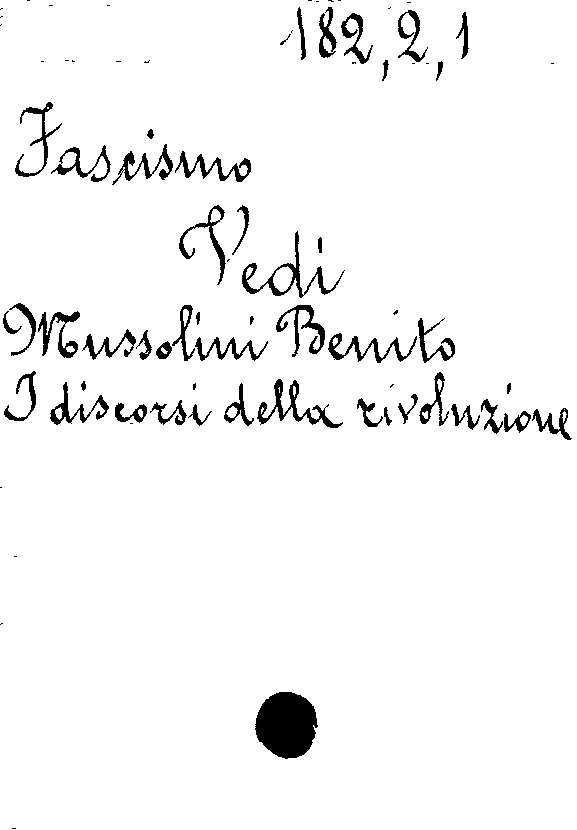 182,2,1
Fascismo
Vedi
Mussolini Benito
I discorsi della rivoluzione